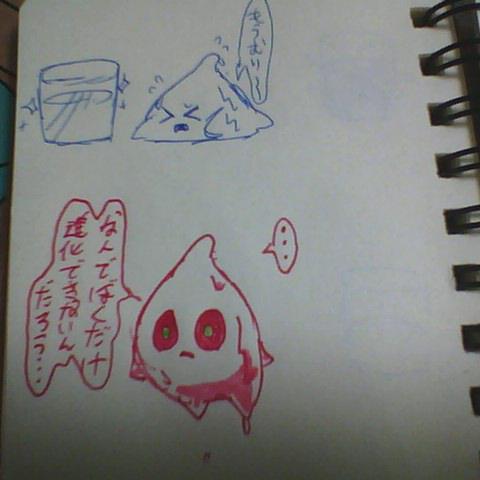 さつむい〜
なんでぼくだけ
進化できないん
だろう…
…